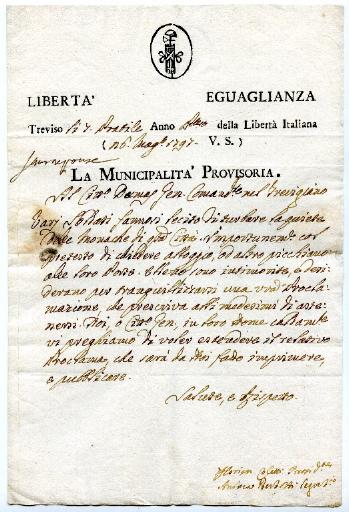 LIBERTA' EGUAGLIANZA
Treviso li 7. Pratile Anno della Libertà Italiana
( 26. Mag.o 1797. V. S. )
LA MUNICIPALITA' PROVISORIA.
Al Citt.o Gen. Comand.te nel Trevigiano
Vari Soldati fannosi lecito di turbare la quiete
delle Monache di q.ta Città
pretesto di chiedere alloggio, od altro picchiano
alle loro Porte. Elleno sono intimorite, e desi-
derano per tranquillizzarsi una vostra Procla-
mazione, che prescriva a' medesimi di aste-
nersi. Noi, o Citt.o Gen., in loro nome
vi preghiamo di voler estendere il relativo
Proclama, che sarà da Noi fatto imprimere,
e pubblicare.
Salute, e Rispetto.